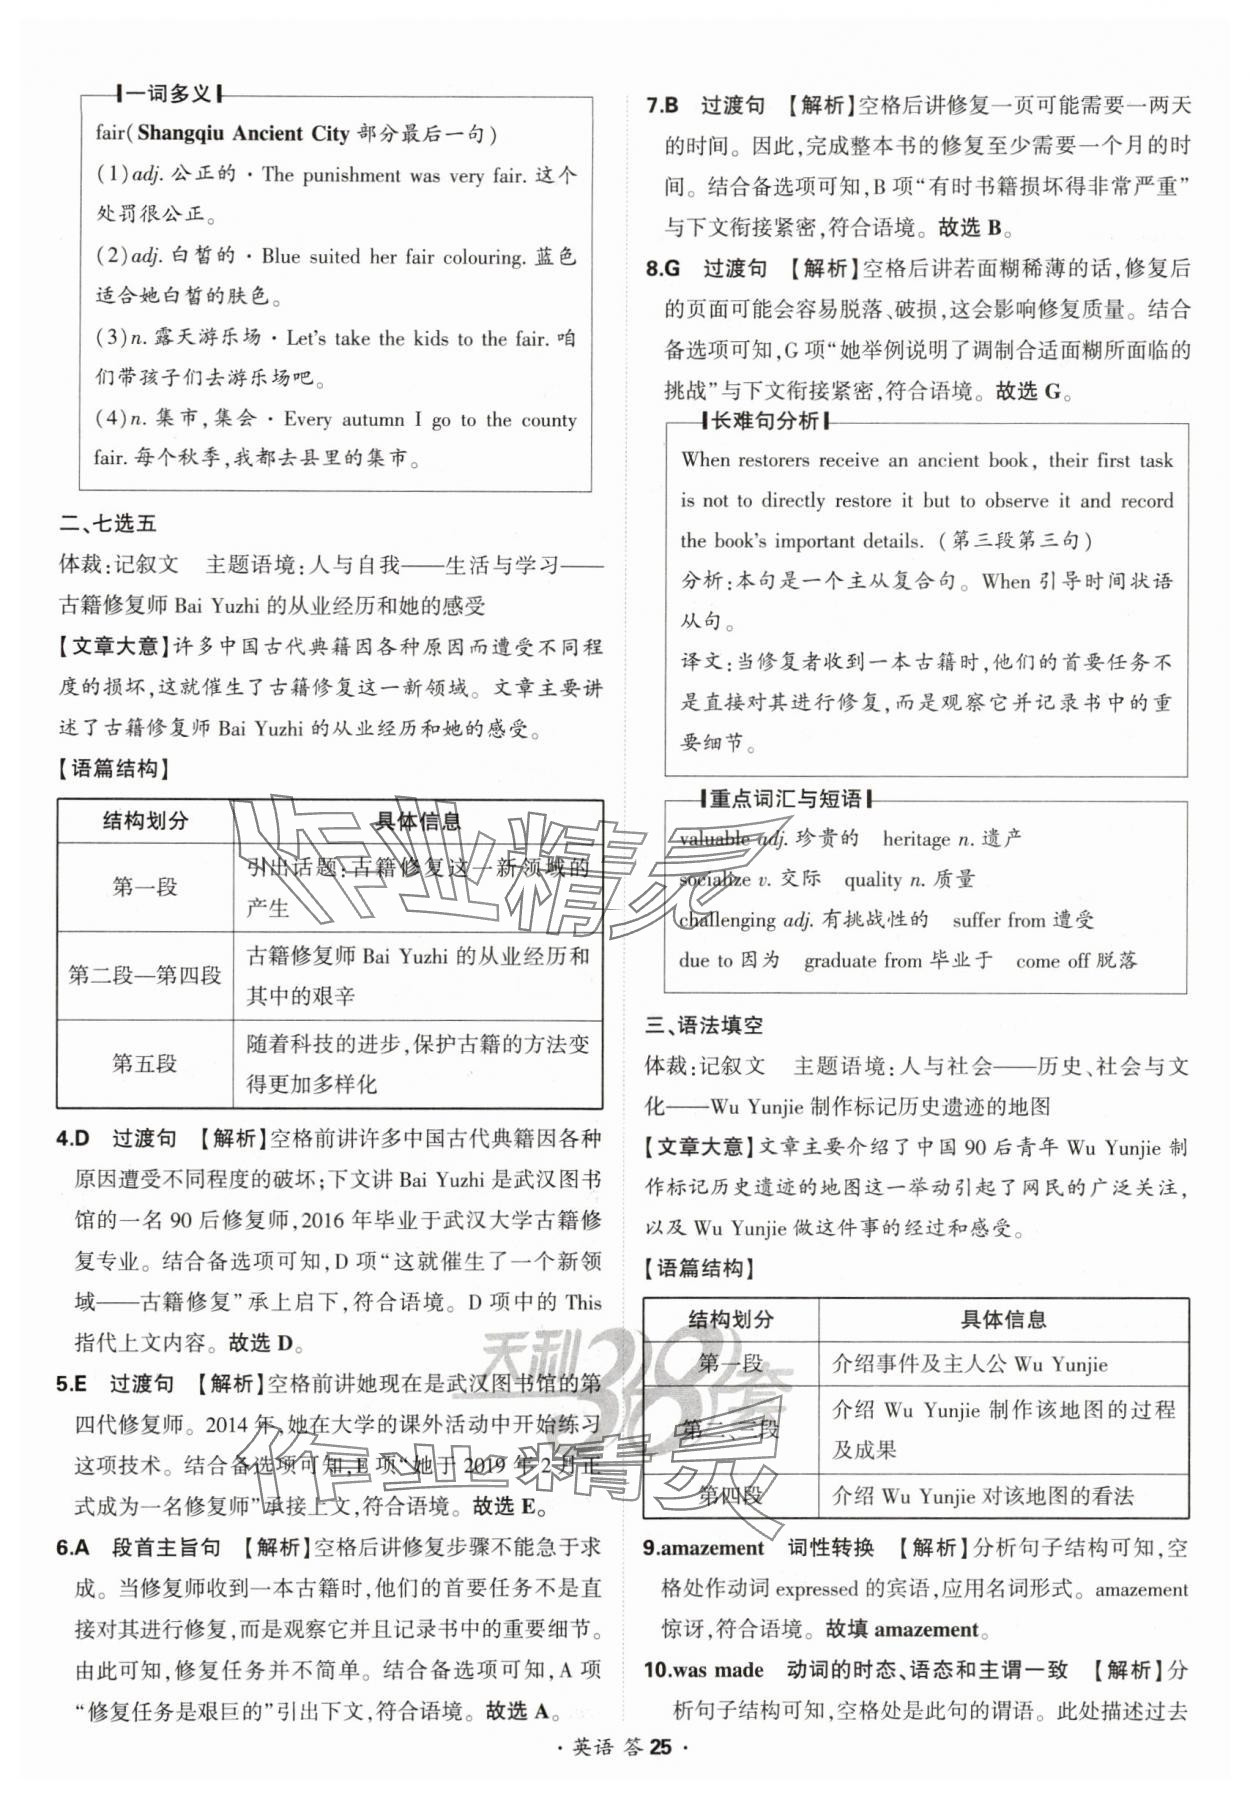 一词多义
fair(Shangqiu Ancient City 部分最后一句)
(1)adj. 公正的·The punishment was very fair. 这个
处罚很公正。
(2)adj. 白皙的·Blue suited her fair colouring. 蓝色
适合她白皙的肤色。
(3)n. 露天游乐场·Let's take the kids to the fair. 咱
们带孩子们去游乐场吧。
(4)n. 集市,集会·Every autumn I go to the county
fair. 每个秋季,我都去县里的集市。
二、七选五
体裁:记叙文 主题语境:人与自我——生活与学习——
古籍修复师 Bai Yuzhi 的从业经历和她的感受
【文章大意】许多中国古代典籍因各种原因而遭受不同程
度的损坏,这就催生了古籍修复这一新领域。文章主要讲
述了古籍修复师 Bai Yuzhi 的从业经历和她的感受。
【语篇结构】
结构划分 具体信息
第一段 引出话题:古籍修复这一新领域的
产生
第二段—第四段 古籍修复师 Bai Yuzhi 的从业经历和
其中的艰辛
第五段 随着科技的进步,保护古籍的方法变
得更加多样化
4.D 过渡句 【解析】空格前讲许多中国古代典籍因各种
原因遭受不同程度的破坏;下文讲 Bai Yuzhi 是武汉图书
馆的一名 90 后修复师,2016 年毕业于武汉大学古籍修
复专业。结合备选项可知,D 项“这就催生了一个新领
域——古籍修复”承上启下,符合语境。D 项中的 This
指代上文内容。故选 D。
5.E 过渡句 【解析】空格前讲她现在是武汉图书馆的第
四代修复师。2014 年,她在大学的课外活动中开始练习
这项技术。结合备选项可知,E 项“她于 2019 年 2 月正
式成为一名修复师”承接上文,符合语境。故选 E。
6.A 段首主旨句 【解析】空格后讲修复步骤不能急于求
成。当修复师收到一本古籍时,他们的首要任务不是直
接对其进行修复,而是观察它并且记录书中的重要细节。
由此可知,修复任务并不简单。结合备选项可知,A 项
“修复任务是艰巨的”引出下文,符合语境。故选 A。
7.B 过渡句 【解析】空格后讲修复一页可能需要一两天
的时间。因此,完成整本书的修复至少需要一个月的时
间。结合备选项可知,B 项“有时书籍损坏得非常严重”
与下文衔接紧密,符合语境。故选 B。
8.G 过渡句 【解析】空格后讲若面糊稀薄的话,修复后
的页面可能会容易脱落、破损,这会影响修复质量。结合
备选项可知,G 项“她举例说明了调制合适面糊所面临的
挑战”与下文衔接紧密,符合语境。故选 G。
长难句分析
When restorers receive an ancient book, their first task
is not to directly restore it but to observe it and record
the book's important details. (第三段第三句)
分析:本句是一个主从复合句。When 引导时间状语
从句。
译文:当修复者收到一本古籍时,他们的首要任务不
是直接对其进行修复,而是观察它并记录书中的重
要细节。
重点词汇与短语
valuable adj. 珍贵的 heritage n. 遗产
socialize v. 交际 quality n. 质量
challenging adj. 有挑战性的 suffer from 遭受
due to 因为 graduate from 毕业于 come off 脱落
三、语法填空
体裁:记叙文 主题语境:人与社会——历史、社会与文
化——Wu Yunjie 制作标记历史遗迹的地图
【文章大意】文章主要介绍了中国 90 后青年 Wu Yunjie 制
作标记历史遗迹的地图这一举动引起了网民的广泛关注,
以及 Wu Yunjie 做这件事的经过和感受。
【语篇结构】
结构划分 具体信息
第一段 介绍事件及主人公 Wu Yunjie
第二、三段 介绍 Wu Yunjie 制作该地图的过程
及成果
第四段 介绍 Wu Yunjie 对该地图的看法
9.amazement 词性转换 【解析】分析句子结构可知,空
格处作动词 expressed 的宾语,应用名词形式。amazement
惊讶,符合语境。故填 amazement。
10.was made 动词的时态、语态和主谓一致 【解析】分
析句子结构可知,空格处是此句的谓语。此处描述过去
·英语 答 25·
作业精灵
天利38套
作业精灵